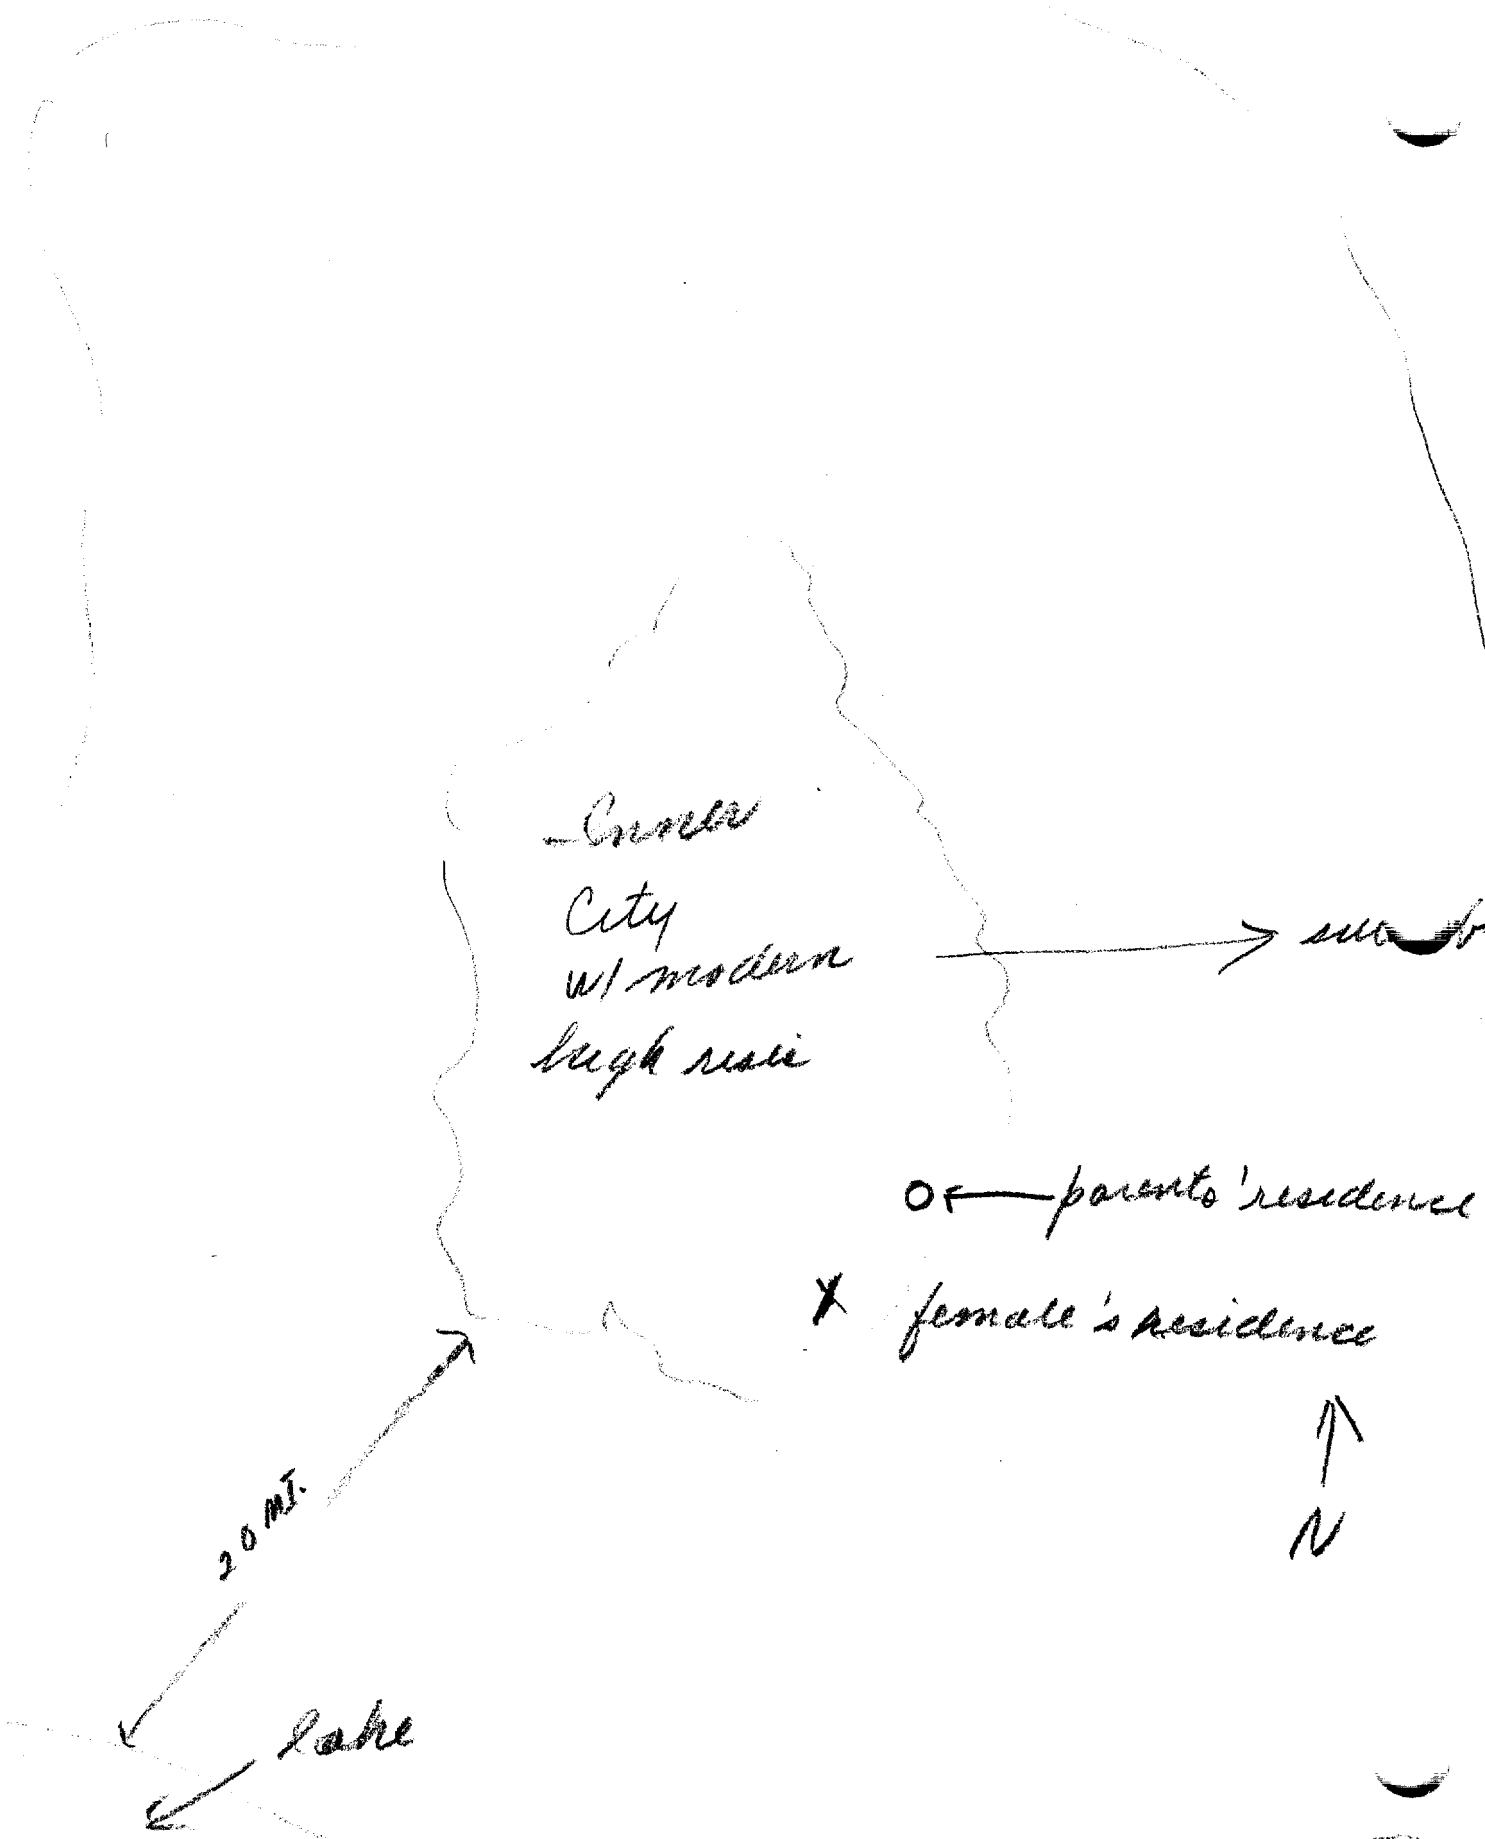 Inner
City
w/ modern
high rises
parents' residence
female's residence
N
20 MI.
lake